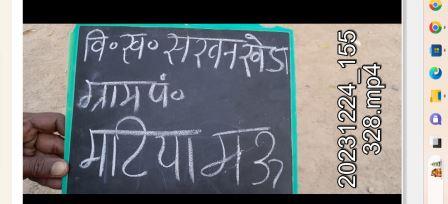 वि॰ख॰ सरवनखेडा
ग्राम पं॰
मटिया मऊ
20231224_155
328.mp4